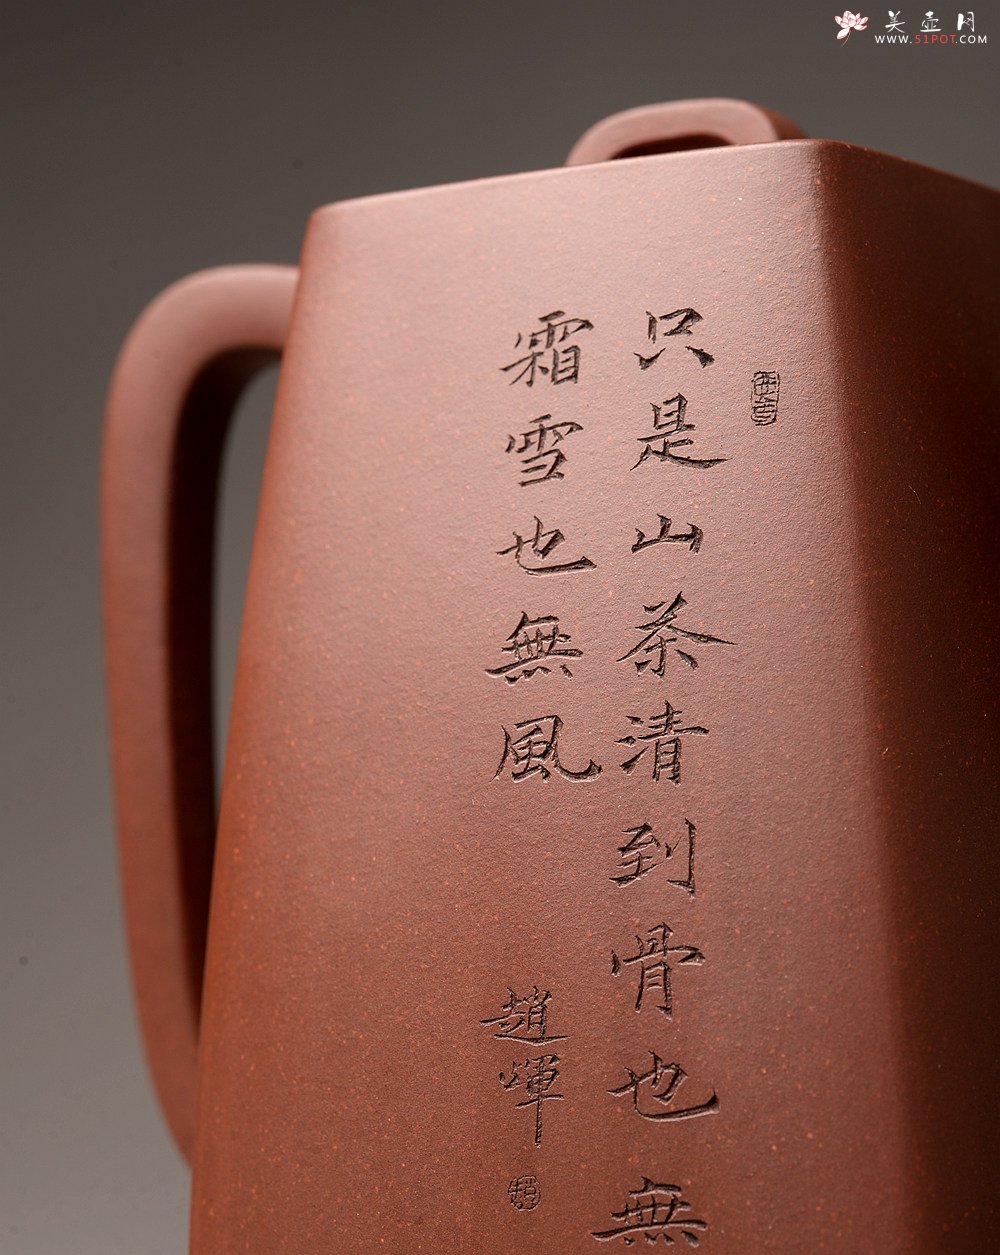 美壶网
WWW.51POT.COM
只是山茶清到骨也無
霜雪也無風
趙暉